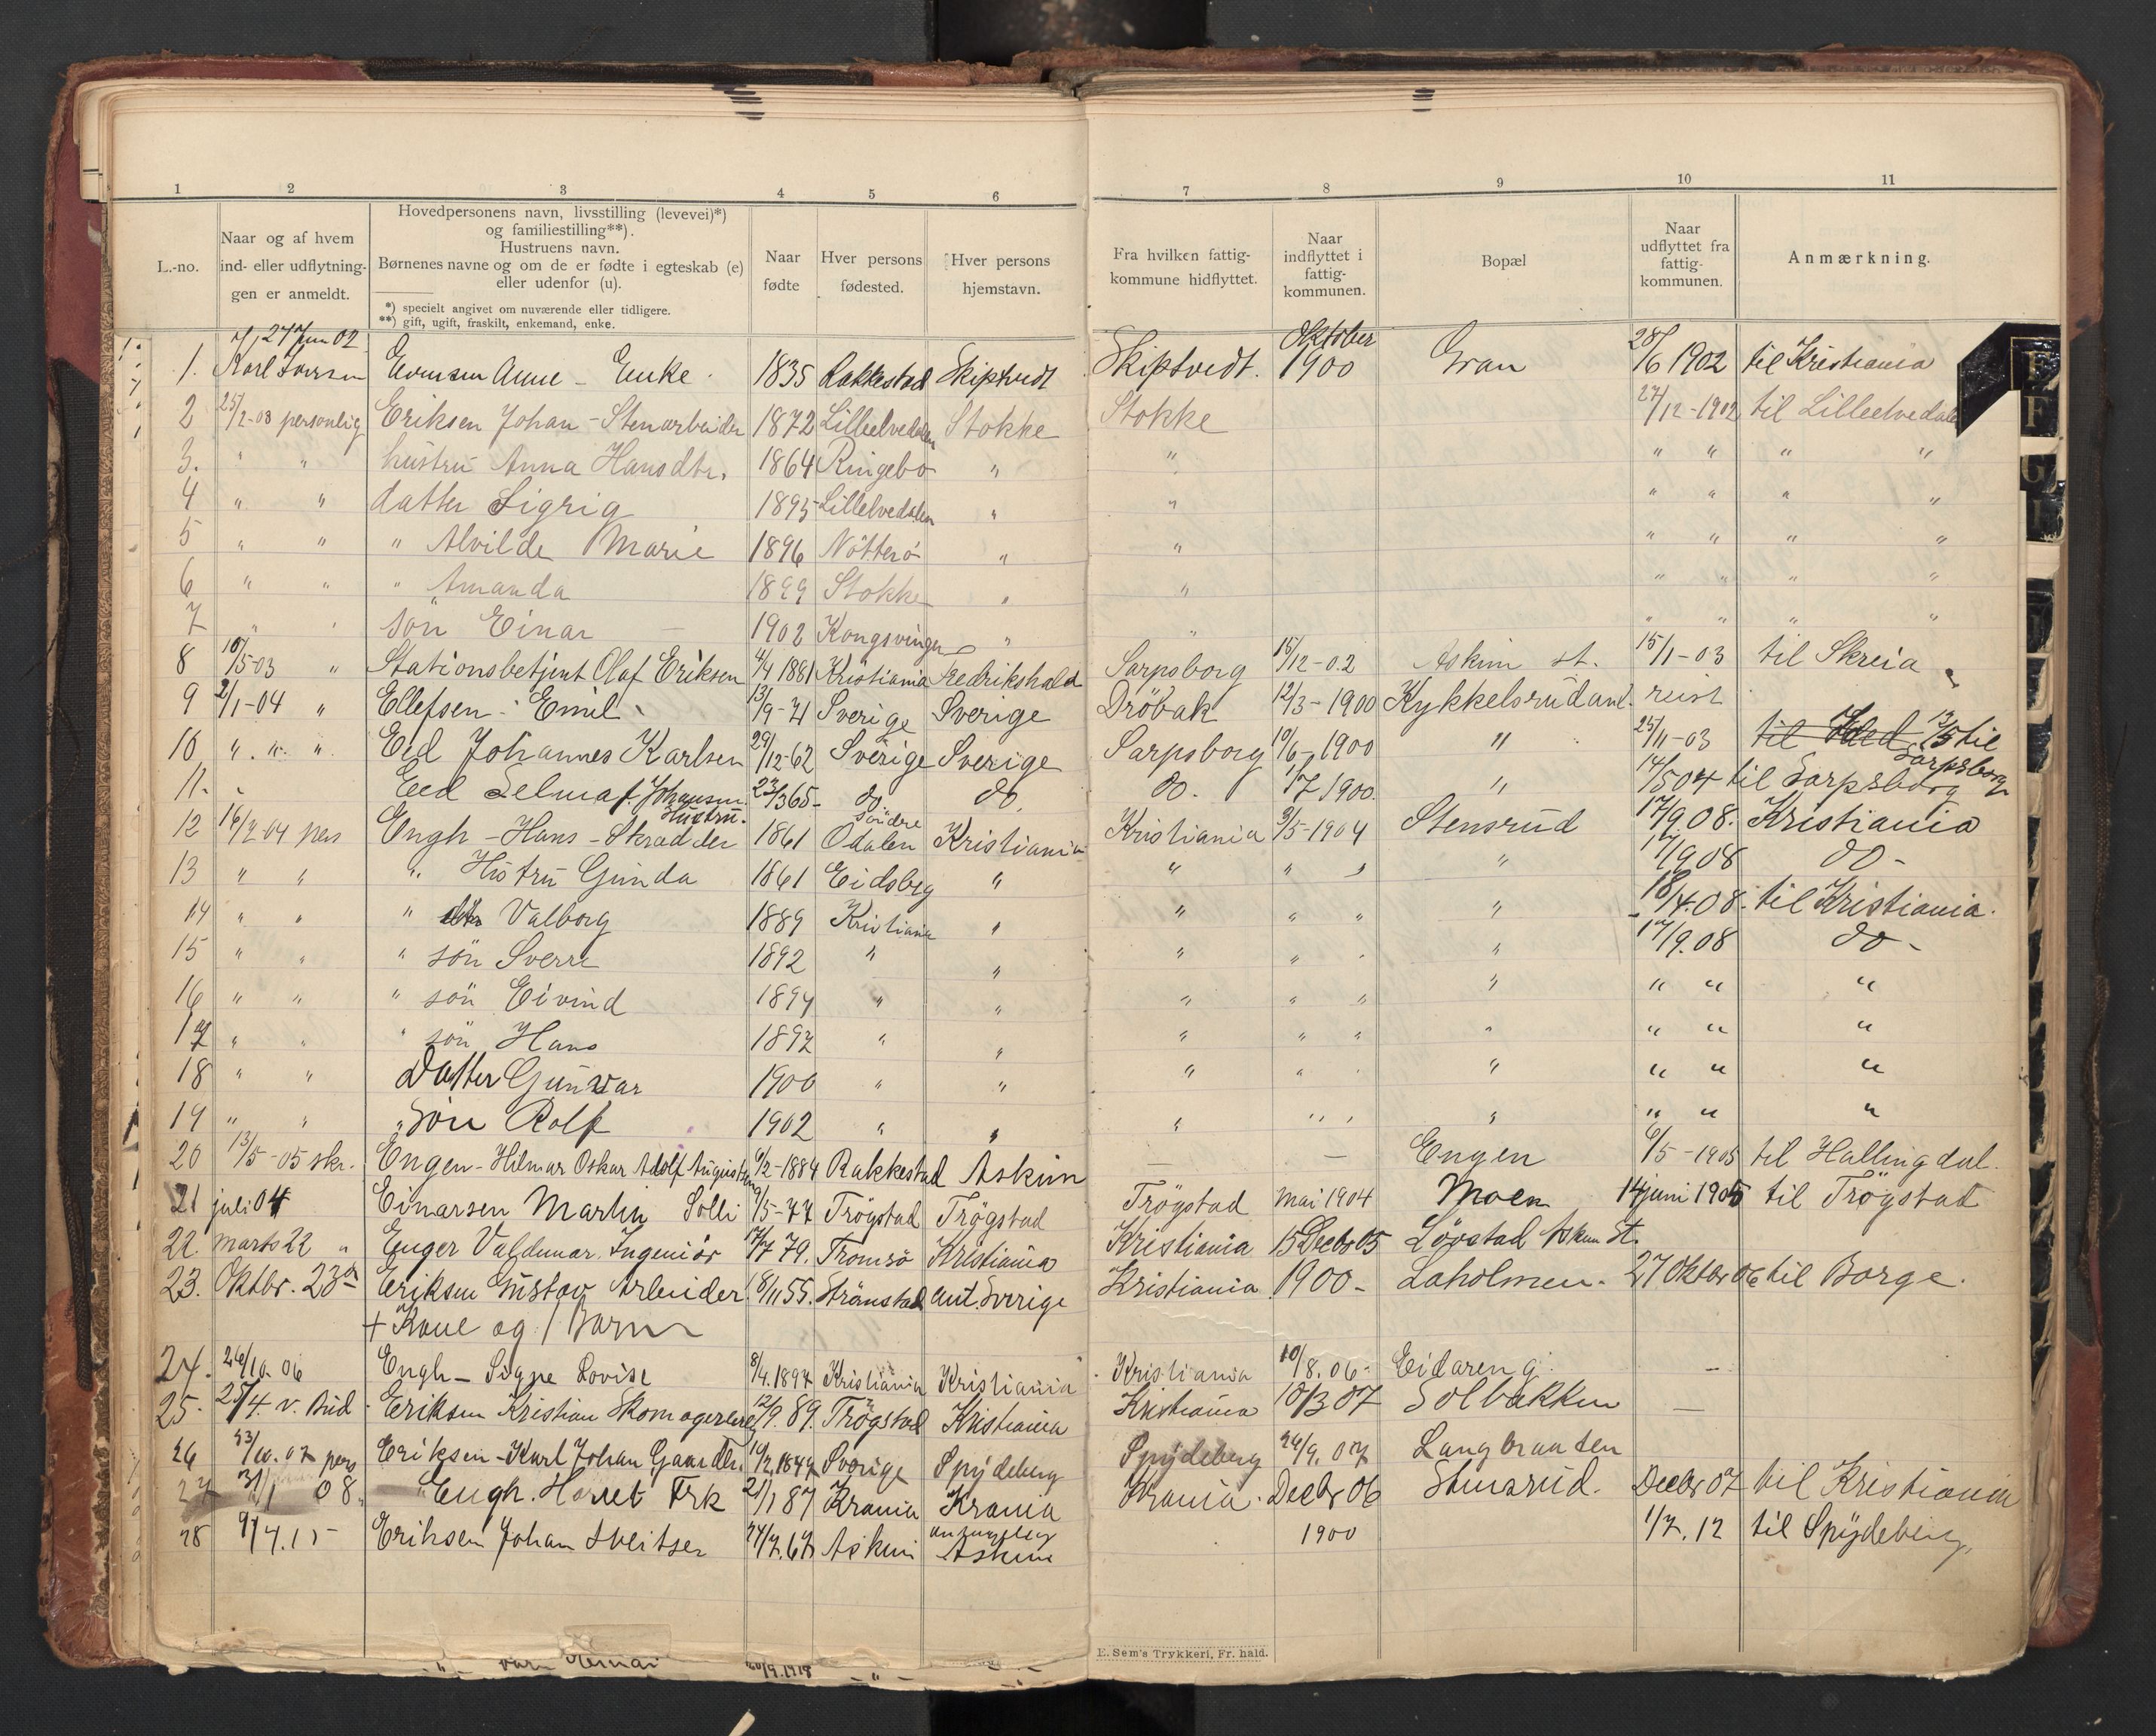 1 2 3 4 5 6 7 8 9 10 11
L.-no.
Naar og af hvem
ind- eller udflytnin-
gen er anmeldt.
Hovedpersonens navn, livsstilling (levevei)*)
og familiestilling**).
Hustruens navn.
Børnenes navne og om de er fødte i egteskab (e)
eller udenfor (u).
*) specielt angivet om nuværende eller tidligere.
**) gift, ugift, fraskilt, enkemand, enke.
Naar
fødte
Hver persons
fødested.
Hver persons
hjemstavn.
Fra hvilken fattig-
kommune hidflyttet.
Naar
indflyttet i
fattig-
kommunen.
Bopæl
Naar
udflyttet fra
fattig-
kommunen.
Anmærkning.
1. 27 Juni 02 Karl Anne - Enke 1835 Rakkestad Skiptvedt Skiptvedt. Oktober 1900 Gran 28/6 1902 til Kristiania
2 25/2-03 personlig Eriksen Johan - Stenarbeider 1872 Lillelvedalen Stokke Stokke 27/12-1902 til Lilleelvedalen
3. " " hustru Anna Hansdtr. 1864 Ringebo " " " " " "
4 " " datter Sigrig 1895 Lillelvedalen " " " " " "
5 " " " Alvilde Marie 1896 Nötterö " " " " " "
6 " " " Amanda 1899 Stokke " " " " " "
7 " " sön Einar 1902 Kongsvinger " " " " " "
8 10/5-03 " Stationsbetjent Olaf Eriksen 4/4 1881 Kristiania Fredrikshald Sarpsborg 15/12-02 Askim st. 15/1-03 til Skreia
9 2/1-04 " Ellefsen - Emil 13/9-71 Sverige Sverige Dröbak 12/3-1900 Kykkelsrud anl. reist
10 " " " Eed Johannes Karlsen 29/12-62 Sverige Sverige Sarpsborg 10/6-1900 " 25/11-03 til 13/5 til Sarpsborg
11. Eed Selma f. Johansen Hustru. 23/3 65- do do. do. 1/7 1900. " 14/5 04 til Sarpsborg
12 16/2-04 pers Engh - Hans - Skradder 1861 Söndre Odalen Kristiania Kristiania 3/5-1904 Stensrud 17/9.08. Kristiania
13 " " " Hustru Gunda 1861 Eidsberg " " " " " 17/9.08 do -
14 " " " dtr Valborg 1889 Kristiania " " " " " 18/4.08. til Kristiania.
15 " " " sön Sverre 1892 " " " " " " 17/9.08 do -
16 " " " sön Eivind 1894 " " " " " " " " "
17 " " " sön Hans 1897 " " " " " " " " "
18 " " Datter Gunvar 1900 " " " " " " " "
19 " " " Sön Rolf 1902 " " " " " " " " "
20 13/5-05 skr. Engen - Hilmar Oskar Adolf 9/2-1884 Rakkestad Askim — — Engen 6/5-1905 til Hallingdal.
21 juli 04 Einarsen Martin Solli 9/5-77 Trögstad Trögstad Trögstad mai 1904 Moen 14 juni 1905 til Trögstad
22. Marts 22 " Enger Valdemar. Ingeniör 17/7 79. Tromsö Kristiania Kristiania 15 Decbr 05 Lövstad Askim St.
23. Oktbr. 23 Eriksen Gustav Arbeider 18/11 55. Strömstad Sverige Kristiania 1900- Laholmen. 27 Oktbr 06 til Borge.
+ Kone og 1 Barn
24. 26/10.06 Engh - Signe Lovise 8/4.1897 Kristiania Kristiania Kristiania 10/8.06- Eidareng. —
25. 25/4. v. Bud Eriksen Kristian 12/9.89. Trögstad Kristiania Kristiania 10/3 07 Solbakken —
26 23/10.07 pers Eriksen - Karl Johan 10/2.1847 Sverige Spydeberg Spydeberg 24/9.07 Langbraaten
27 31/1 08. Engh. Frk 21/1 87 Krania Krania Krania. Decbr 06 Stensrud. Decbr 07 til Kristiania
28 9/7.15 Eriksen Johan Sveitser 24/7.67 Askim Askim 1900 1/7.12 til Spydeberg,
E. Sem's Trykkeri, Fr. hald.